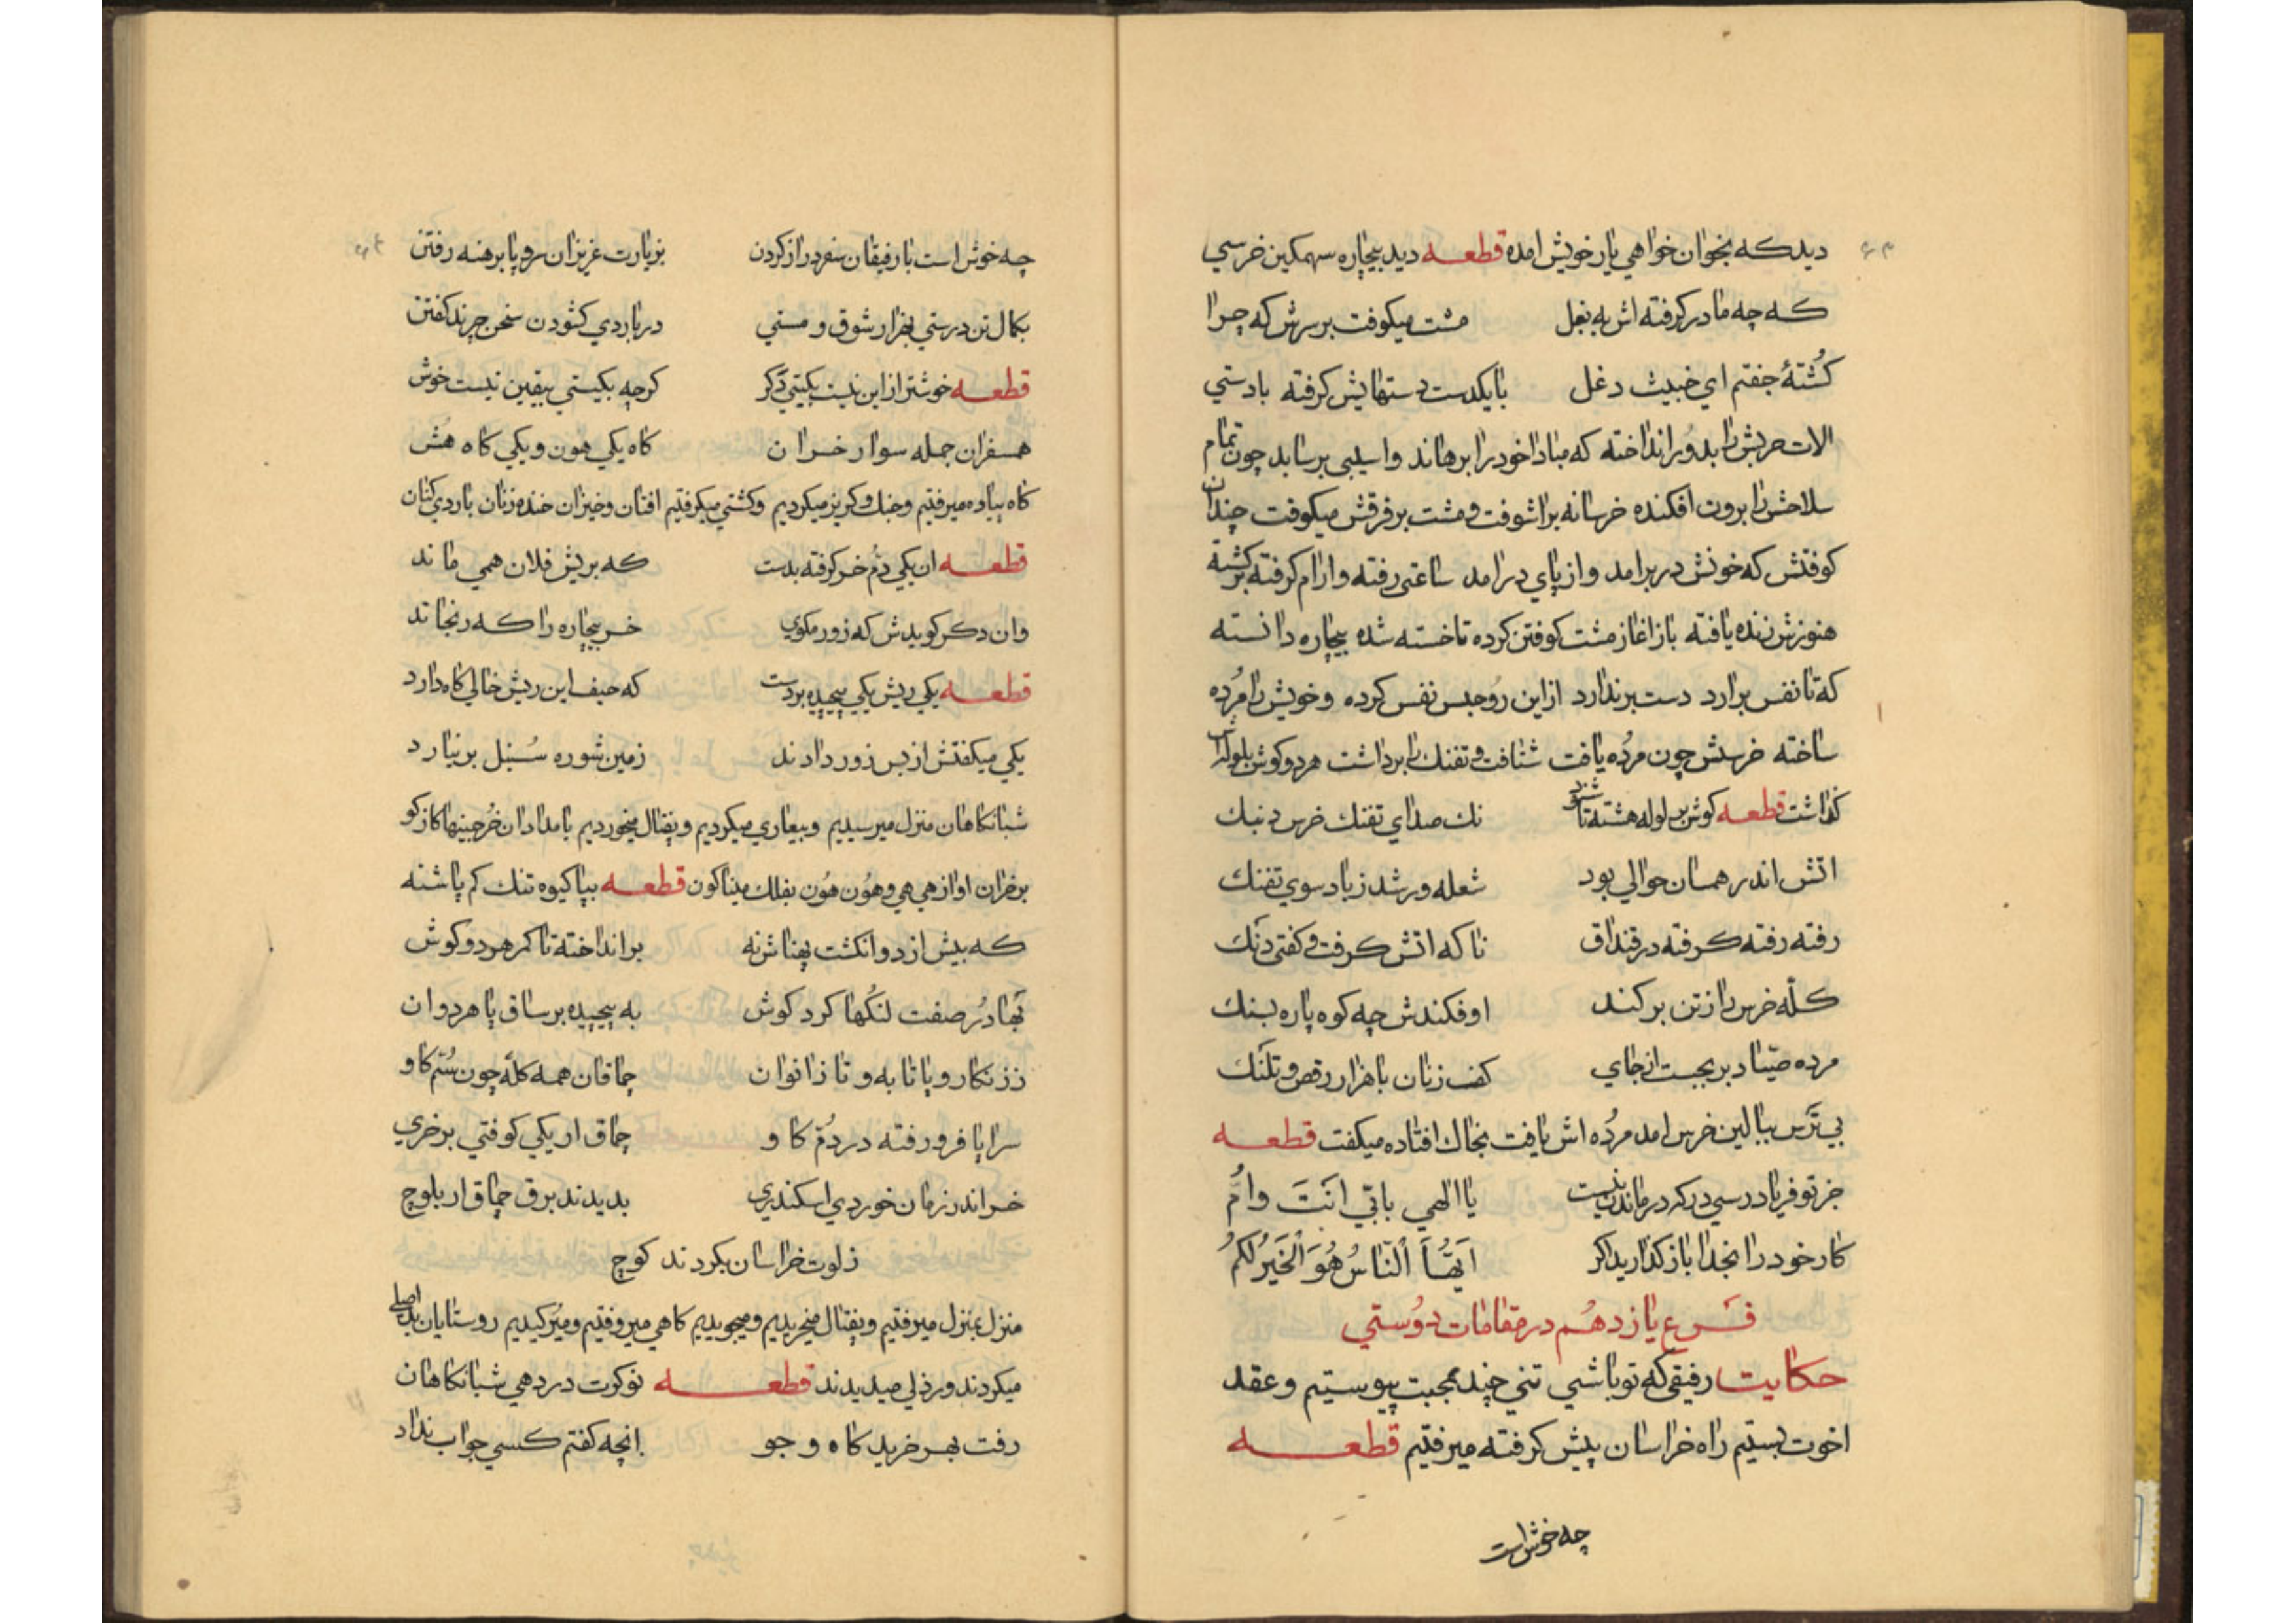 دید که بخوان خواهي یار خویش امده قطعه دید بیچاره سهمکین خرسي
که چه مادر کرفته اش به بغل مشت میکوفت بر سرش که چرا
کُشتهٔ جفتم اي خبیث دغل بایکدست دستهایش کرفته بادستي
الات حربش را بدور انداخته که مبادا خود را برهاند و اسیبي برساند چون تمام
سلاحش را برون افکنده خرسانه براشوفت و مشت بر فرقش میکوفت چندان
کوفتش که خونش در برامد و از پاي درامد ساعتي رفته و ارام کرفته برکشته
هنوزش زنده یافته باز اغاز مشت کوفتن کرده تا خسته شده بیچاره دانسته
که تا نفس برارد دست برندارد از این رو حبس نفس کرده و خویش را مُرده
ساخته خرسش چون مرُده یافت شتافت و تفنك را برداشت هر دو کوش بلوله اش
کذاشت قطعه کوش بر لوله هشته تا شنود نك صداي تفنك خرس دبنك
اتش اندر همان حوالي بود شعله ور شد ز باد سوي تفنك
رفته رفته کرفته در قنداق تا که اتش کرفت و کفتي دنك
کلّه خرس را ز تن برکند اوفکندش چه کوه پاره بسنك
مرده صیّاد بر بجست از جاي کف زنان با هزار رقص و تلنك
بي تَرس ببالین خرس امد مرُده اش یافت بخاك افتاده میکفت قطعه
جز تو فریاد رسي در که درماندن نیست یا الهي بابّي انَتَ واُمُّ
کار خود را بخدا باز کذارید اکر اَیهُّاَ اْلنّاسُ هُوَ اْلخَیَرُ لکمُ
فَرع یازدهُم در مقامات دوُستي
حکایت رفیقي که تو باشي تني چند بمحبت پیوستیم و عقد
اخوت بستیم راه خراسان پیش کرفته میرفتیم قطعه
چه خوش است
چه خوش است با رفیقان سفر دراز کردن بزیارت عزیزان سر و پا برهنه رفتن
بکمال تن درستي بهزار شوق و مستي در باردي کشودن سخن چرند کفتن
قطعه خوشتر از این نیست بکیتي دَکر کرچه بکیستي بیقین نیست خوش
همسفران جمله سوار خران کاه یکي هون و یکي کاه هُش
کاه پیاده میرفتیم و جنك و کریز میکردیم و کشتي میکرفتیم افتان و خیزان خنده زنان باردي کنان
قطعه ان یکي دُم خر کرفته بدست که بریش فلان همي ماند
وان دکر کویدش که زور مکوي خر بیچاره را که رنجاند
قطعه یکي ریش یکي پیچیده بر دست که حیف این ریش خالي کاه دارد
یکي میکفتش از بس زور دادند زمین شوره سُنبل بر نیارد
شبانکاهان منزل میرسیدیم و بیعاري میکردیم و یقنال میخوردیم بامدادان خُرجینها کاز کو
بر خران اواز هي هي و هوُن هوُن بفلك میناکون قطعه بپا کیوه تنك کم پاشنه
که بیش از دو انکشت پهناش نه برانداخته تا کمر هر دو کوش
بَهادرُ صفت لنُکها کرد کوش به پیچیده بر ساق پا هر دوان
ززنکار و پاتابه و تا زانوان چماقان همه کلّه چون سُم کاو
سراپا فرو رفته در دُمّ کاو چماق ار یکي کوفتي بر خري
خر اندر زمان خوردي اسکندري بدیدند برق چماق ار بلوچ
ز لوت خراسان بکردند کوچ
منزل بمنزل میرفتیم و یقنال میخریدیم و میجویدیم کاهي میروفتیم و میُرکیدیم روستایان بد اصلي
میکردند و رذلي میدیدند قطعه نوکرت در دهي شبانکاهان
رفت بهر خرید کاه و جو انچه کفتم کسي جواب نداد